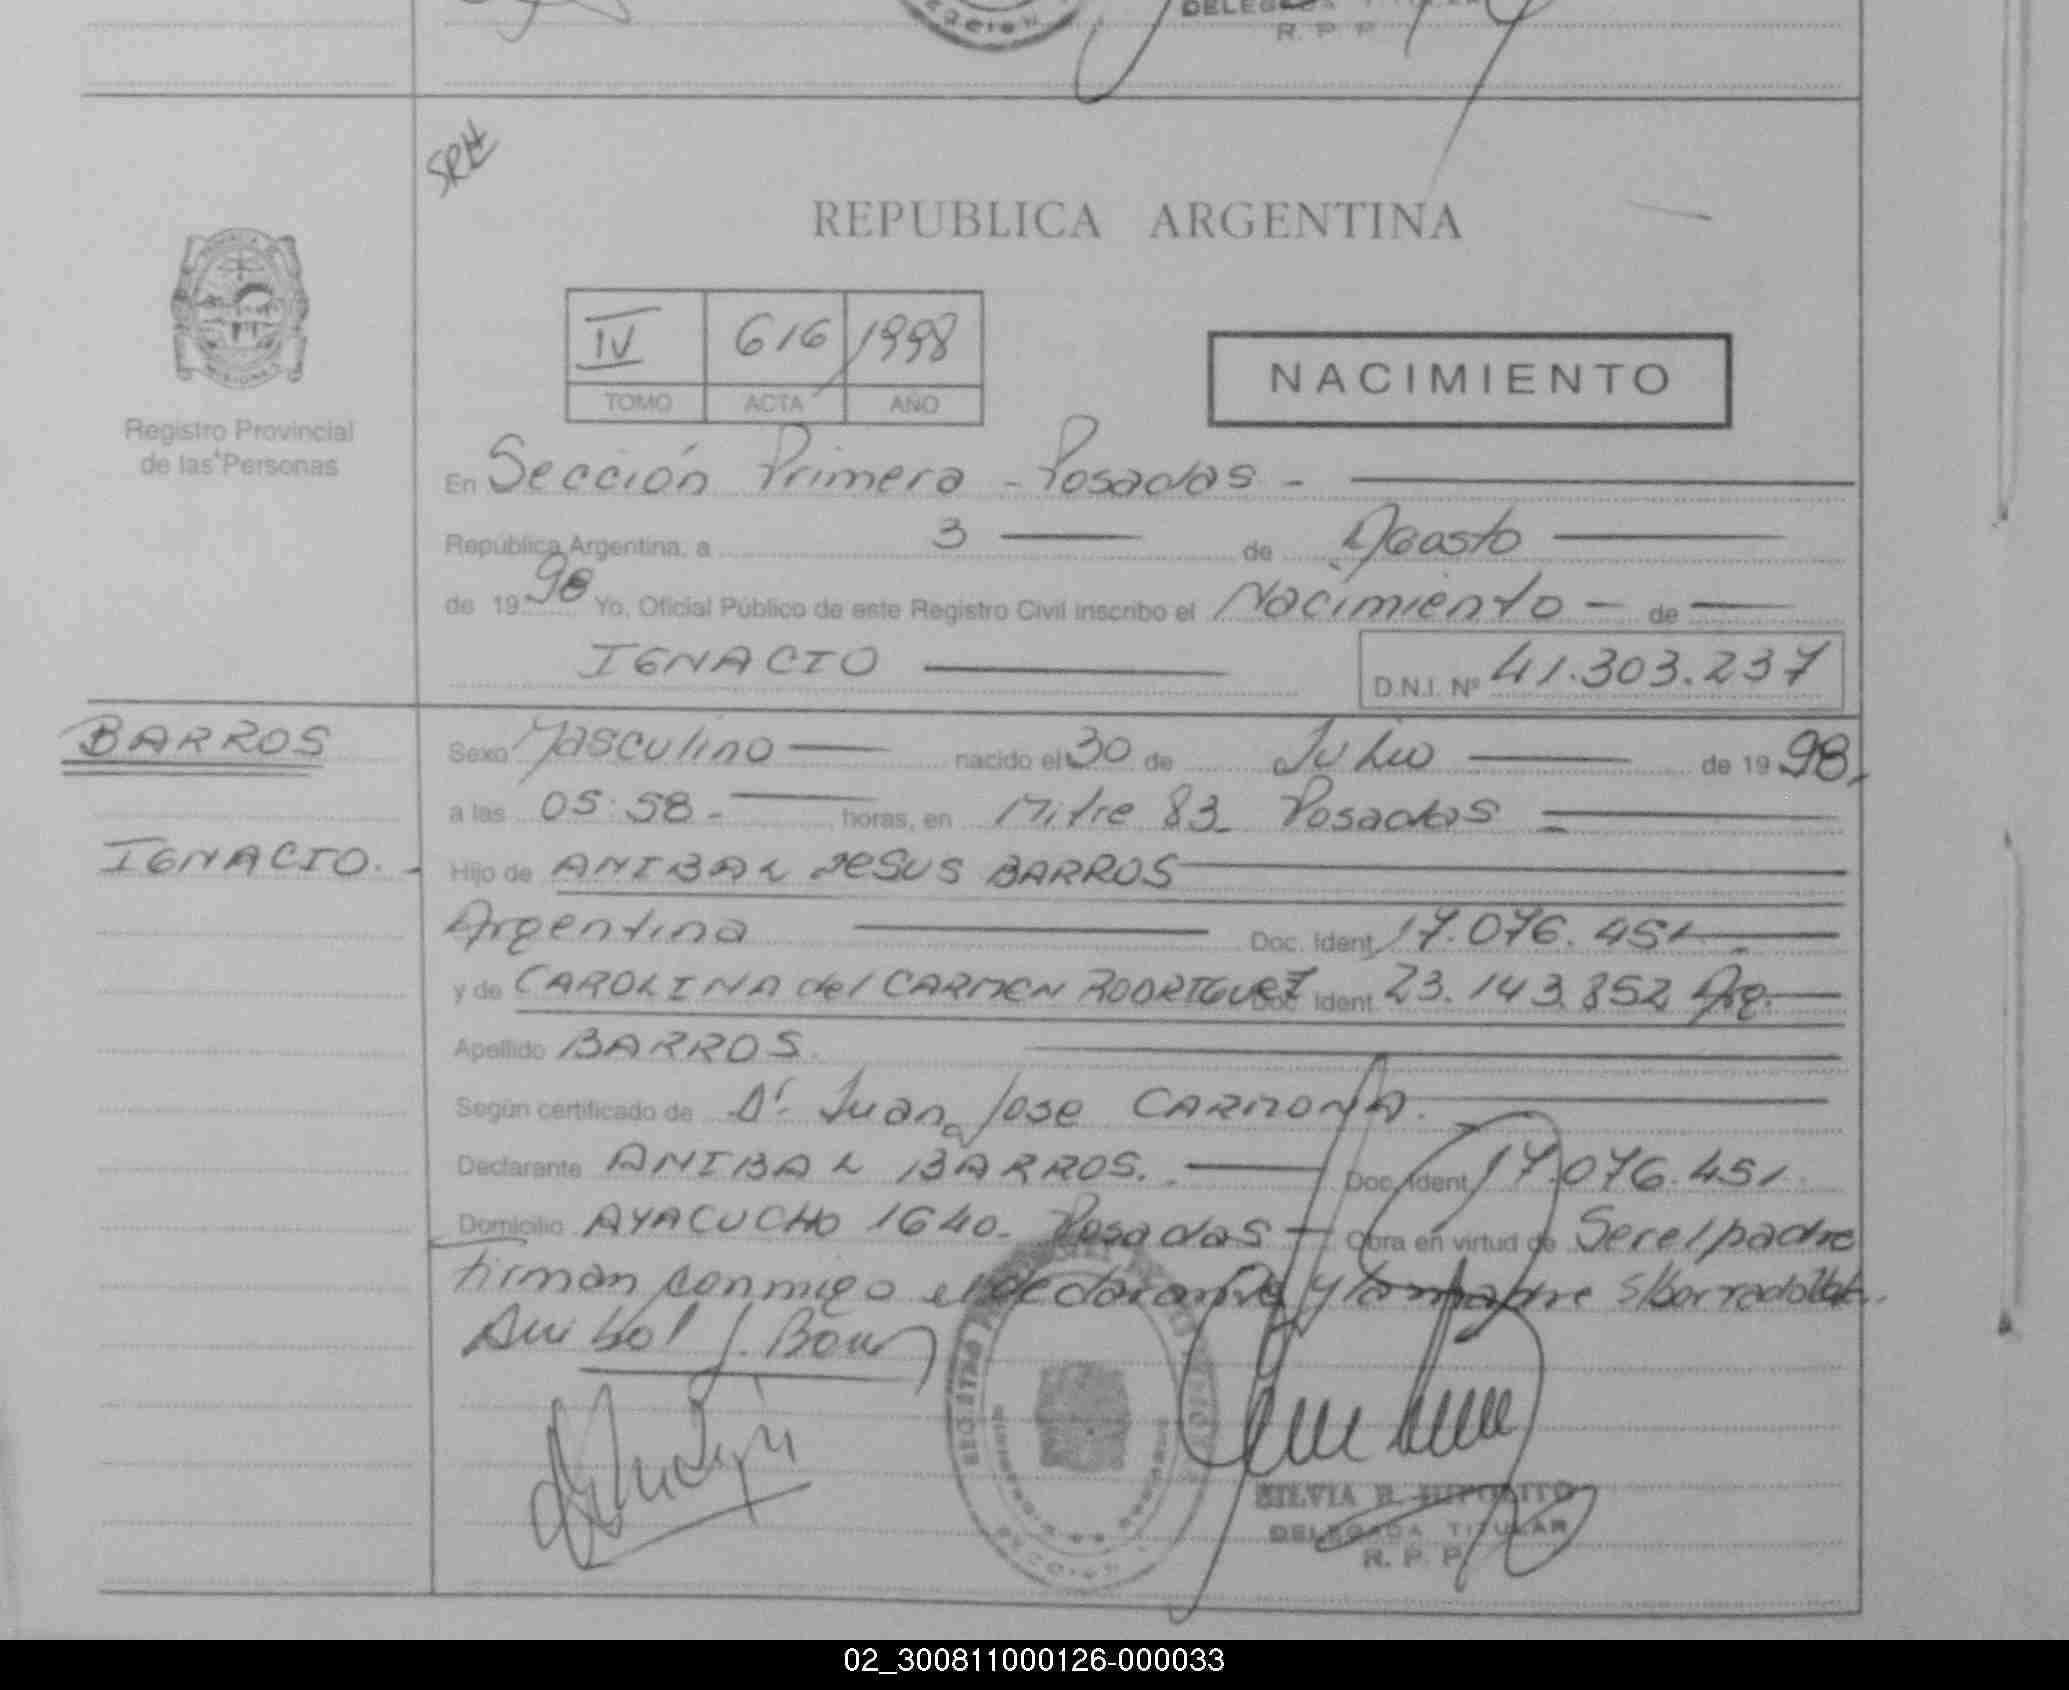 DELEGADA TITULAR
R. P. P.
SRH
REPUBLICA ARGENTINA
IV 616 1998
TOMO ACTA AÑO
NACIMIENTO
Registro Provincial
de las Personas
En Sección Primera - Posadas -
República Argentina, a 3 de Agosto
de 1998 Yo, Oficial Público de este Registro Civil inscribo el Nacimiento - de
IGNACIO D.N.I. Nº 41.303.237
BARROS
Sexo Masculino nacido el 30 de Julio de 1998,
a las 05:58 - horas, en Mitre 83 - Posadas
IGNACIO. -
Hijo de ANIBAL JESUS BARROS
Argentina Doc. Ident. 17.076.451
y de CAROLINA del CARMEN RODRIGUEZ Doc. Ident. 23.143.852 Arg.
Apellido BARROS.
Según certificado de Dr. Juan Jose CARMONA.
Declarante ANIBAL BARROS. Doc. Ident. 17.076.451.
Domicilio AYACUCHO 1640 - Posadas - Obra en virtud de Ser el padre
Firman conmigo el declarante y la madre
Anibal J. Barros
SILVIA B. HIPOLITO
DELEGADA TITULAR
R. P. P.
02_300811000126-000033